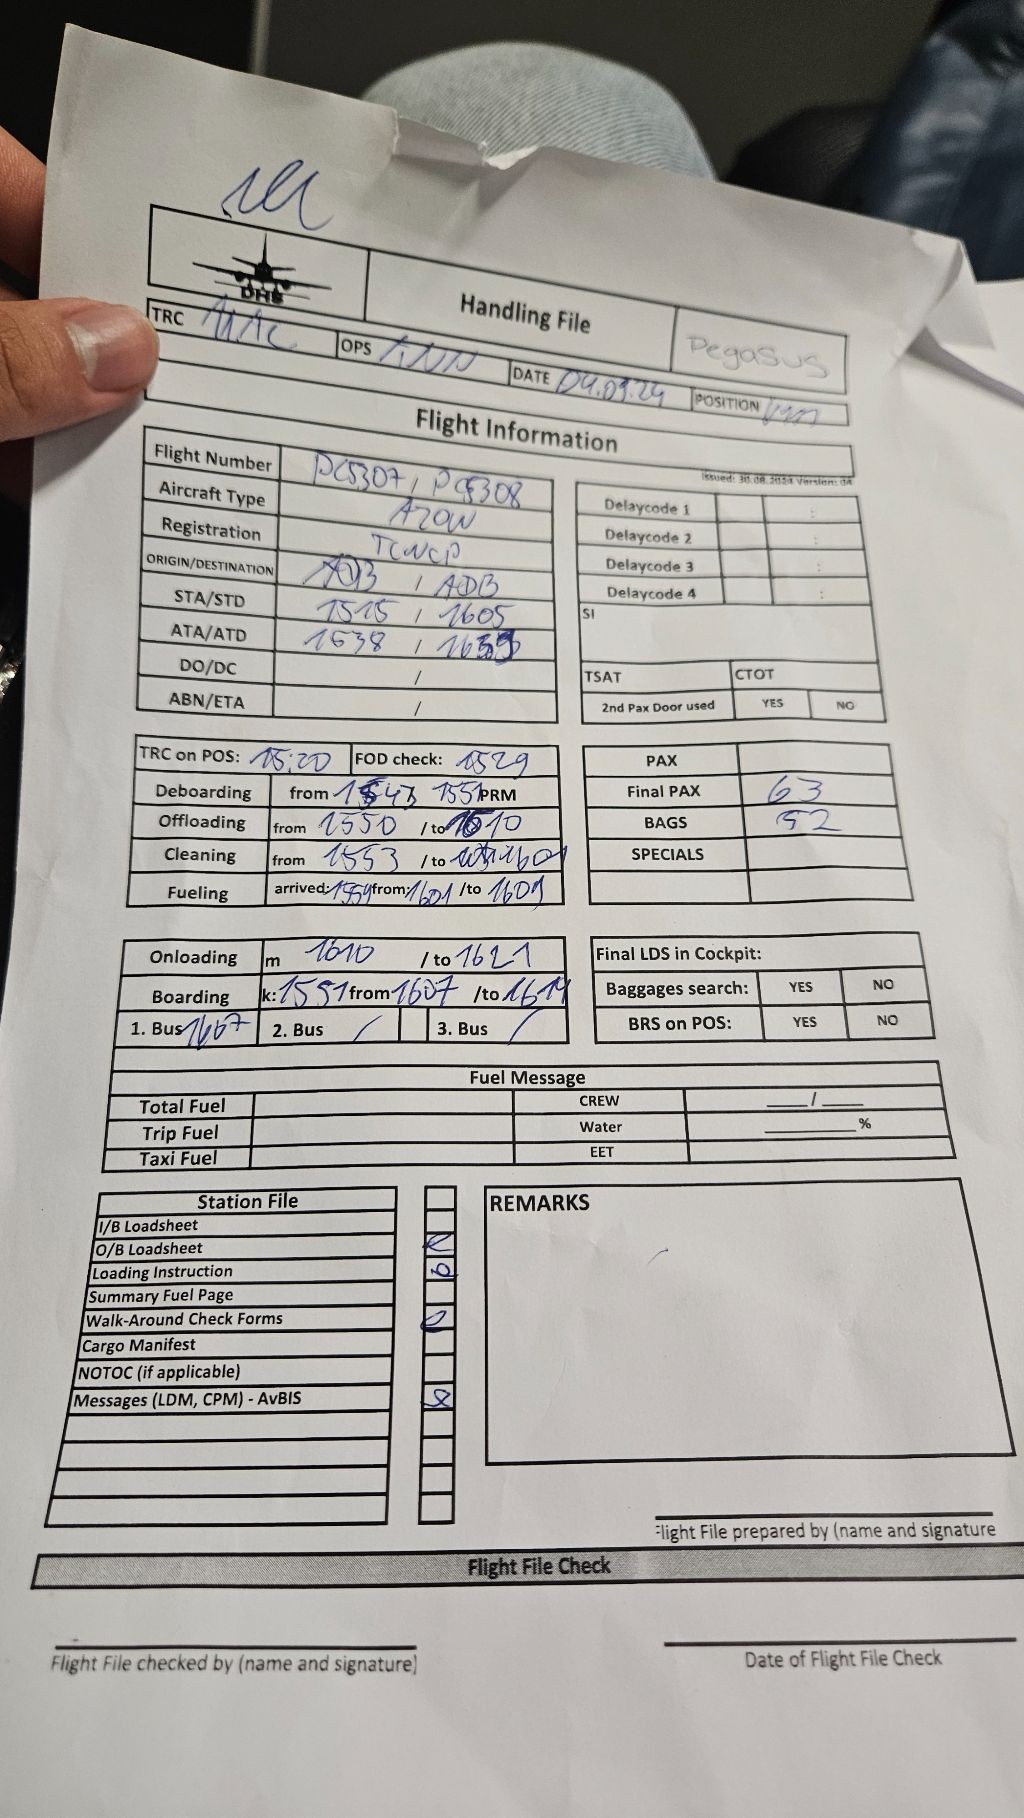 DHS
Handling File
Pegasus
TRC
OPS ANN
DATE 04.09.24
POSITION
Flight Information
Issued: 30.08.2024 Version: 04
Flight Number PC5307 / PC5308
Aircraft Type A20W
Registration TCNCP
ORIGIN/DESTINATION ADB / ADB
STA/STD 1515 / 1605
ATA/ATD 1538 /
DO/DC /
ABN/ETA /
Delaycode 1 :
Delaycode 2 :
Delaycode 3 :
Delaycode 4 :
SI
TSAT CTOT
2nd Pax Door used YES NO
TRC on POS: 15:20 FOD check: 1529
Deboarding from 1551 PRM
Offloading from 1550 /to 1610
Cleaning from 1553 /to
Fueling arrived: 1559 from: 1601 /to 1609
PAX
Final PAX 63
BAGS 52
SPECIALS
Onloading m 1610 /to 1621
Boarding k: 1551 from 1607 /to 1614
1. Bus 1607 2. Bus / 3. Bus /
Final LDS in Cockpit:
Baggages search: YES NO
BRS on POS: YES NO
Fuel Message
Total Fuel CREW ___/___
Trip Fuel Water ______%
Taxi Fuel EET
Station File
I/B Loadsheet
O/B Loadsheet
Loading Instruction
Summary Fuel Page
Walk-Around Check Forms
Cargo Manifest
NOTOC (if applicable)
Messages (LDM, CPM) - AvBIS
REMARKS
Flight File prepared by (name and signature
Flight File Check
Flight File checked by (name and signature)
Date of Flight File Check